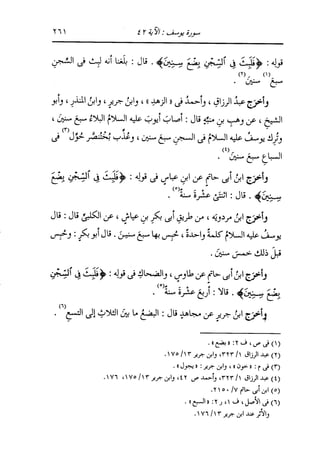 سورة يوسف : الآية ٤٢
٢٦١
قوله : ﴿فَلَبِثَ فِى ٱلسِّجْنِ بِضْعَ سِنِينَ﴾ . قال : بلغنا أنه لبث فى السجن
سبع(١) سنين(٢) .
وأخرج عبدُ الرزاقِ ، وأحمدُ فى « الزهدِ » ، وابنُ جريرٍ ، وابنُ المنذرِ ، وأبو
الشيخِ ، عن وهبِ بنِ منبهٍ قال : أصاب أيوبَ عليه السلامُ البلاءُ سبعَ سنين ،
وتُرِك يوسفُ عليه السلامُ فى السجنِ سبعَ سنين ، وعُذِّب بُخْتُنَصَّرَ حُوِّل(٣) فى
السباعِ سبعَ سنين(٤) .
وأخرَج ابنُ أبى حاتمٍ عن ابنِ عباسٍ فى قوله : ﴿فَلَبِثَ فِى ٱلسِّجْنِ بِضْعَ
سِنِينَ﴾ . قال : اثنتَىْ عشْرةَ سنةً(٥) .
وأخرَج ابنُ مردويَه ، من طريقِ أبى بكرِ بنِ عياشٍ ، عن الكلبىِّ قال : قال
يوسفُ عليه السلامُ كلمةً واحدةً ، حُبِس بها سبعَ سنين . قال أبو بكرٍ : وحُبِس
قبلَ ذلك خمسَ سنين .
وأخرَج ابنُ أبى حاتمٍ عن طاوسٍ ، والضحاكِ فى قوله : ﴿فَلَبِثَ فِى ٱلسِّجْنِ
بِضْعَ سِنِينَ﴾ . قالا : أربعَ عشْرةَ سنةً .
وأخرَج ابنُ جريرٍ عن مجاهدٍ قال : البضعُ ما بينَ الثلاثِ إلى التسعِ(٦) .
(١) فى ص ، ف ٢ : « بضع » .
(٢) عبد الرزاق ١/ ٣٢٣ ، وابن جرير ١٣/ ١٧٥ .
(٣) فى م : ، وابن جرير : « يجول » .
(٤) عبد الرزاق ١/ ٣٢٣ ، وأحمد ص ٤٢ ، وابن جرير ١٣/ ١٧٥ ، ١٧٦ .
(٥) ابن أبى حاتم ٧/ ٢١٥٠ .
(٦) فى الأصل ، ف ١ ، ر ٢ : « السبع » .
والأثر عند ابن جرير ١٣/ ١٧٦ .